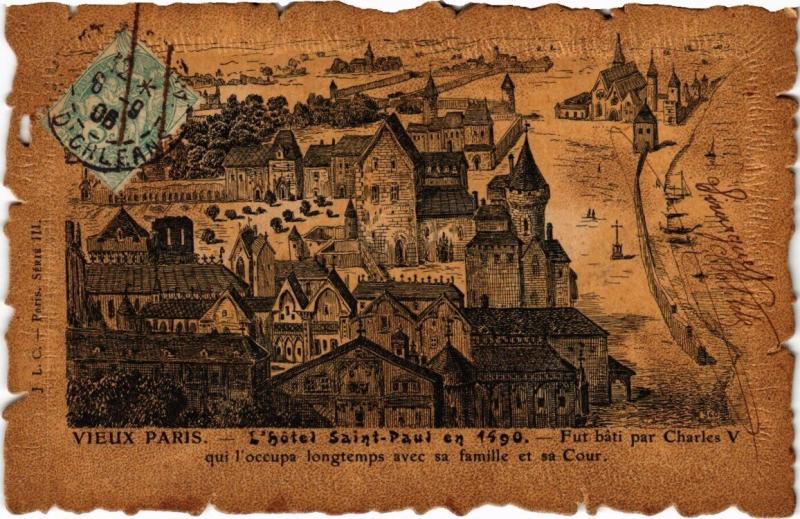 D'ORLEAN
J L C. — PARIS. SÉRIE III.
VIEUX PARIS. — L'hôtel Saint-Paul en 1490. — Fut bâti par Charles V
qui l'occupa longtemps avec sa famille et sa Cour.